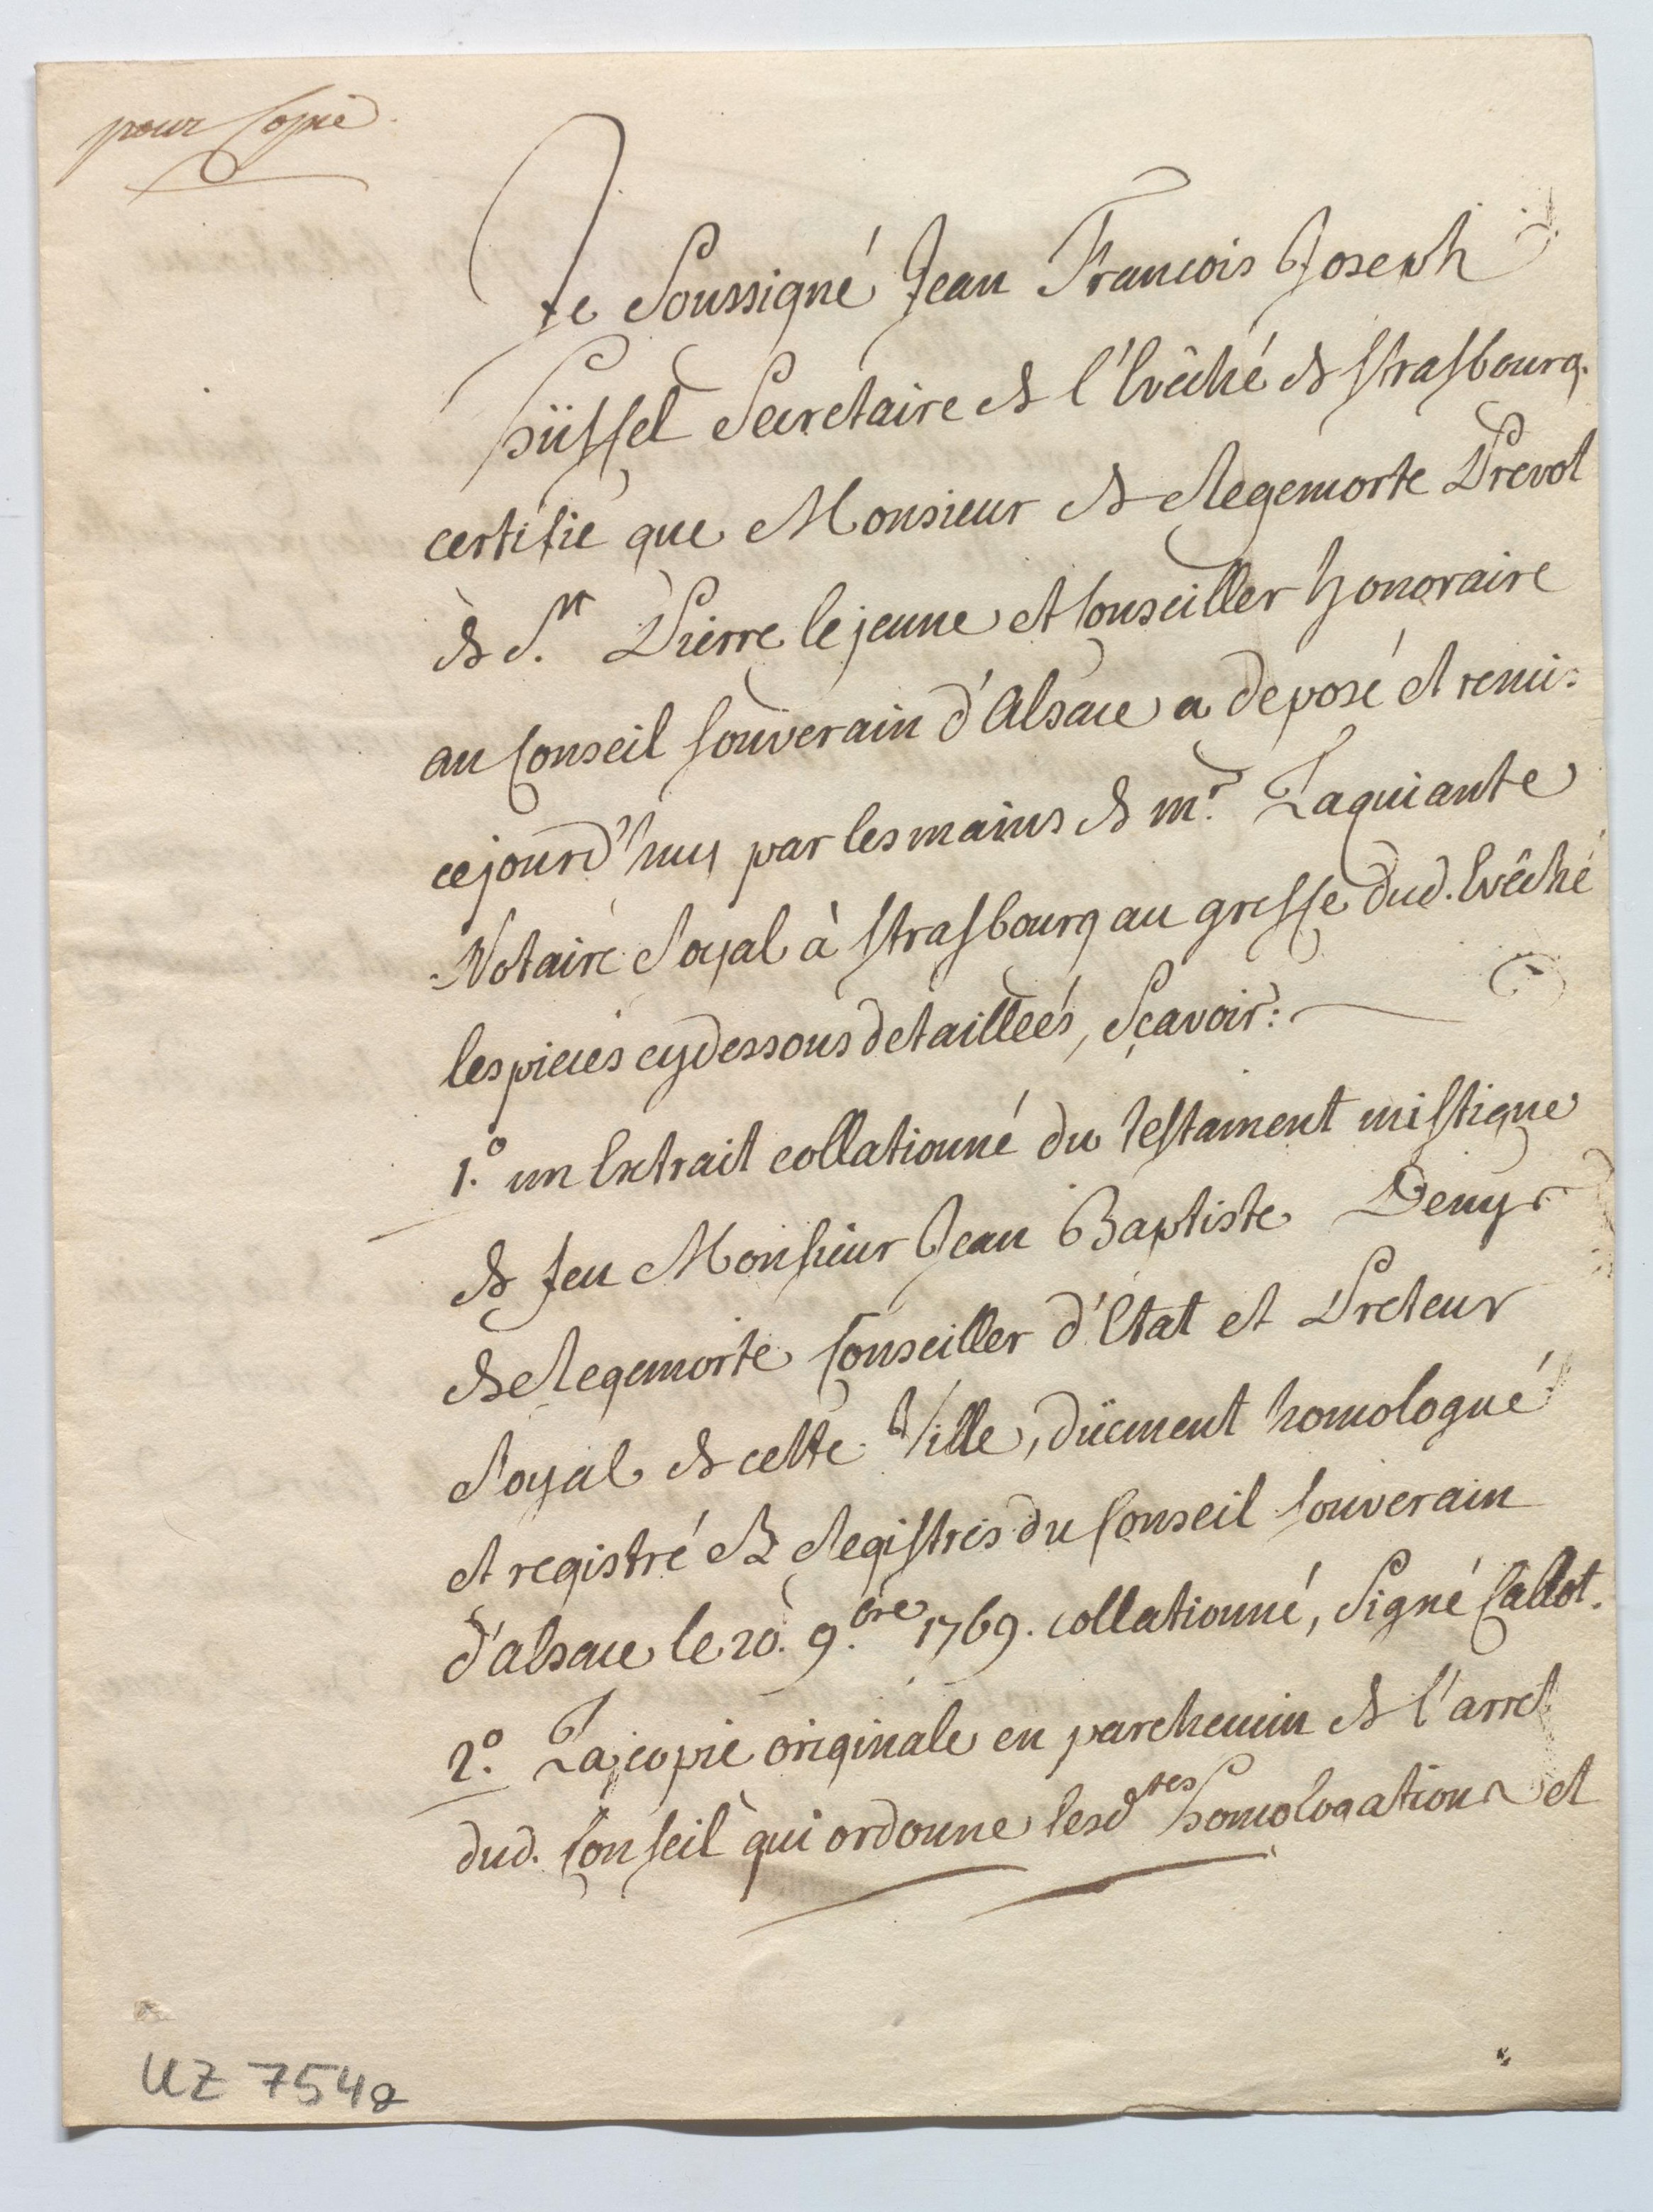 pour Copie.
Je Soussigné Jean Francois Joseph
Hüffel Secretaire de l'Evêché de Strasbourg.
certifie que Monsieur de Regemorte Prevot
de St. Pierre le jeune et Conseiller honoraire
au Conseil Souverain d'Alsace a deposé et remis
cejourd'huy par les mains de mr. Laquiante
Notaire Royal à Strasbourg au greffe dud. Evêché
les pieces cy dessous detailleés, Sçavoir:
1.° un Extrait collationné du testament mistique
de feu Monsieur Jean Baptiste Denys
de Regemorte Conseiller d'Etat et Preteur
Royal de cette Ville, düement homologué
et registré ez Registres du Conseil Souverain
d'alsace le 20. 9.bre 1769. collationné, Signé Callot.
2.° La copie originale en parchemin de l'arret
dud. Conseil qui ordonne lesdtes homologation et
UZ 754a